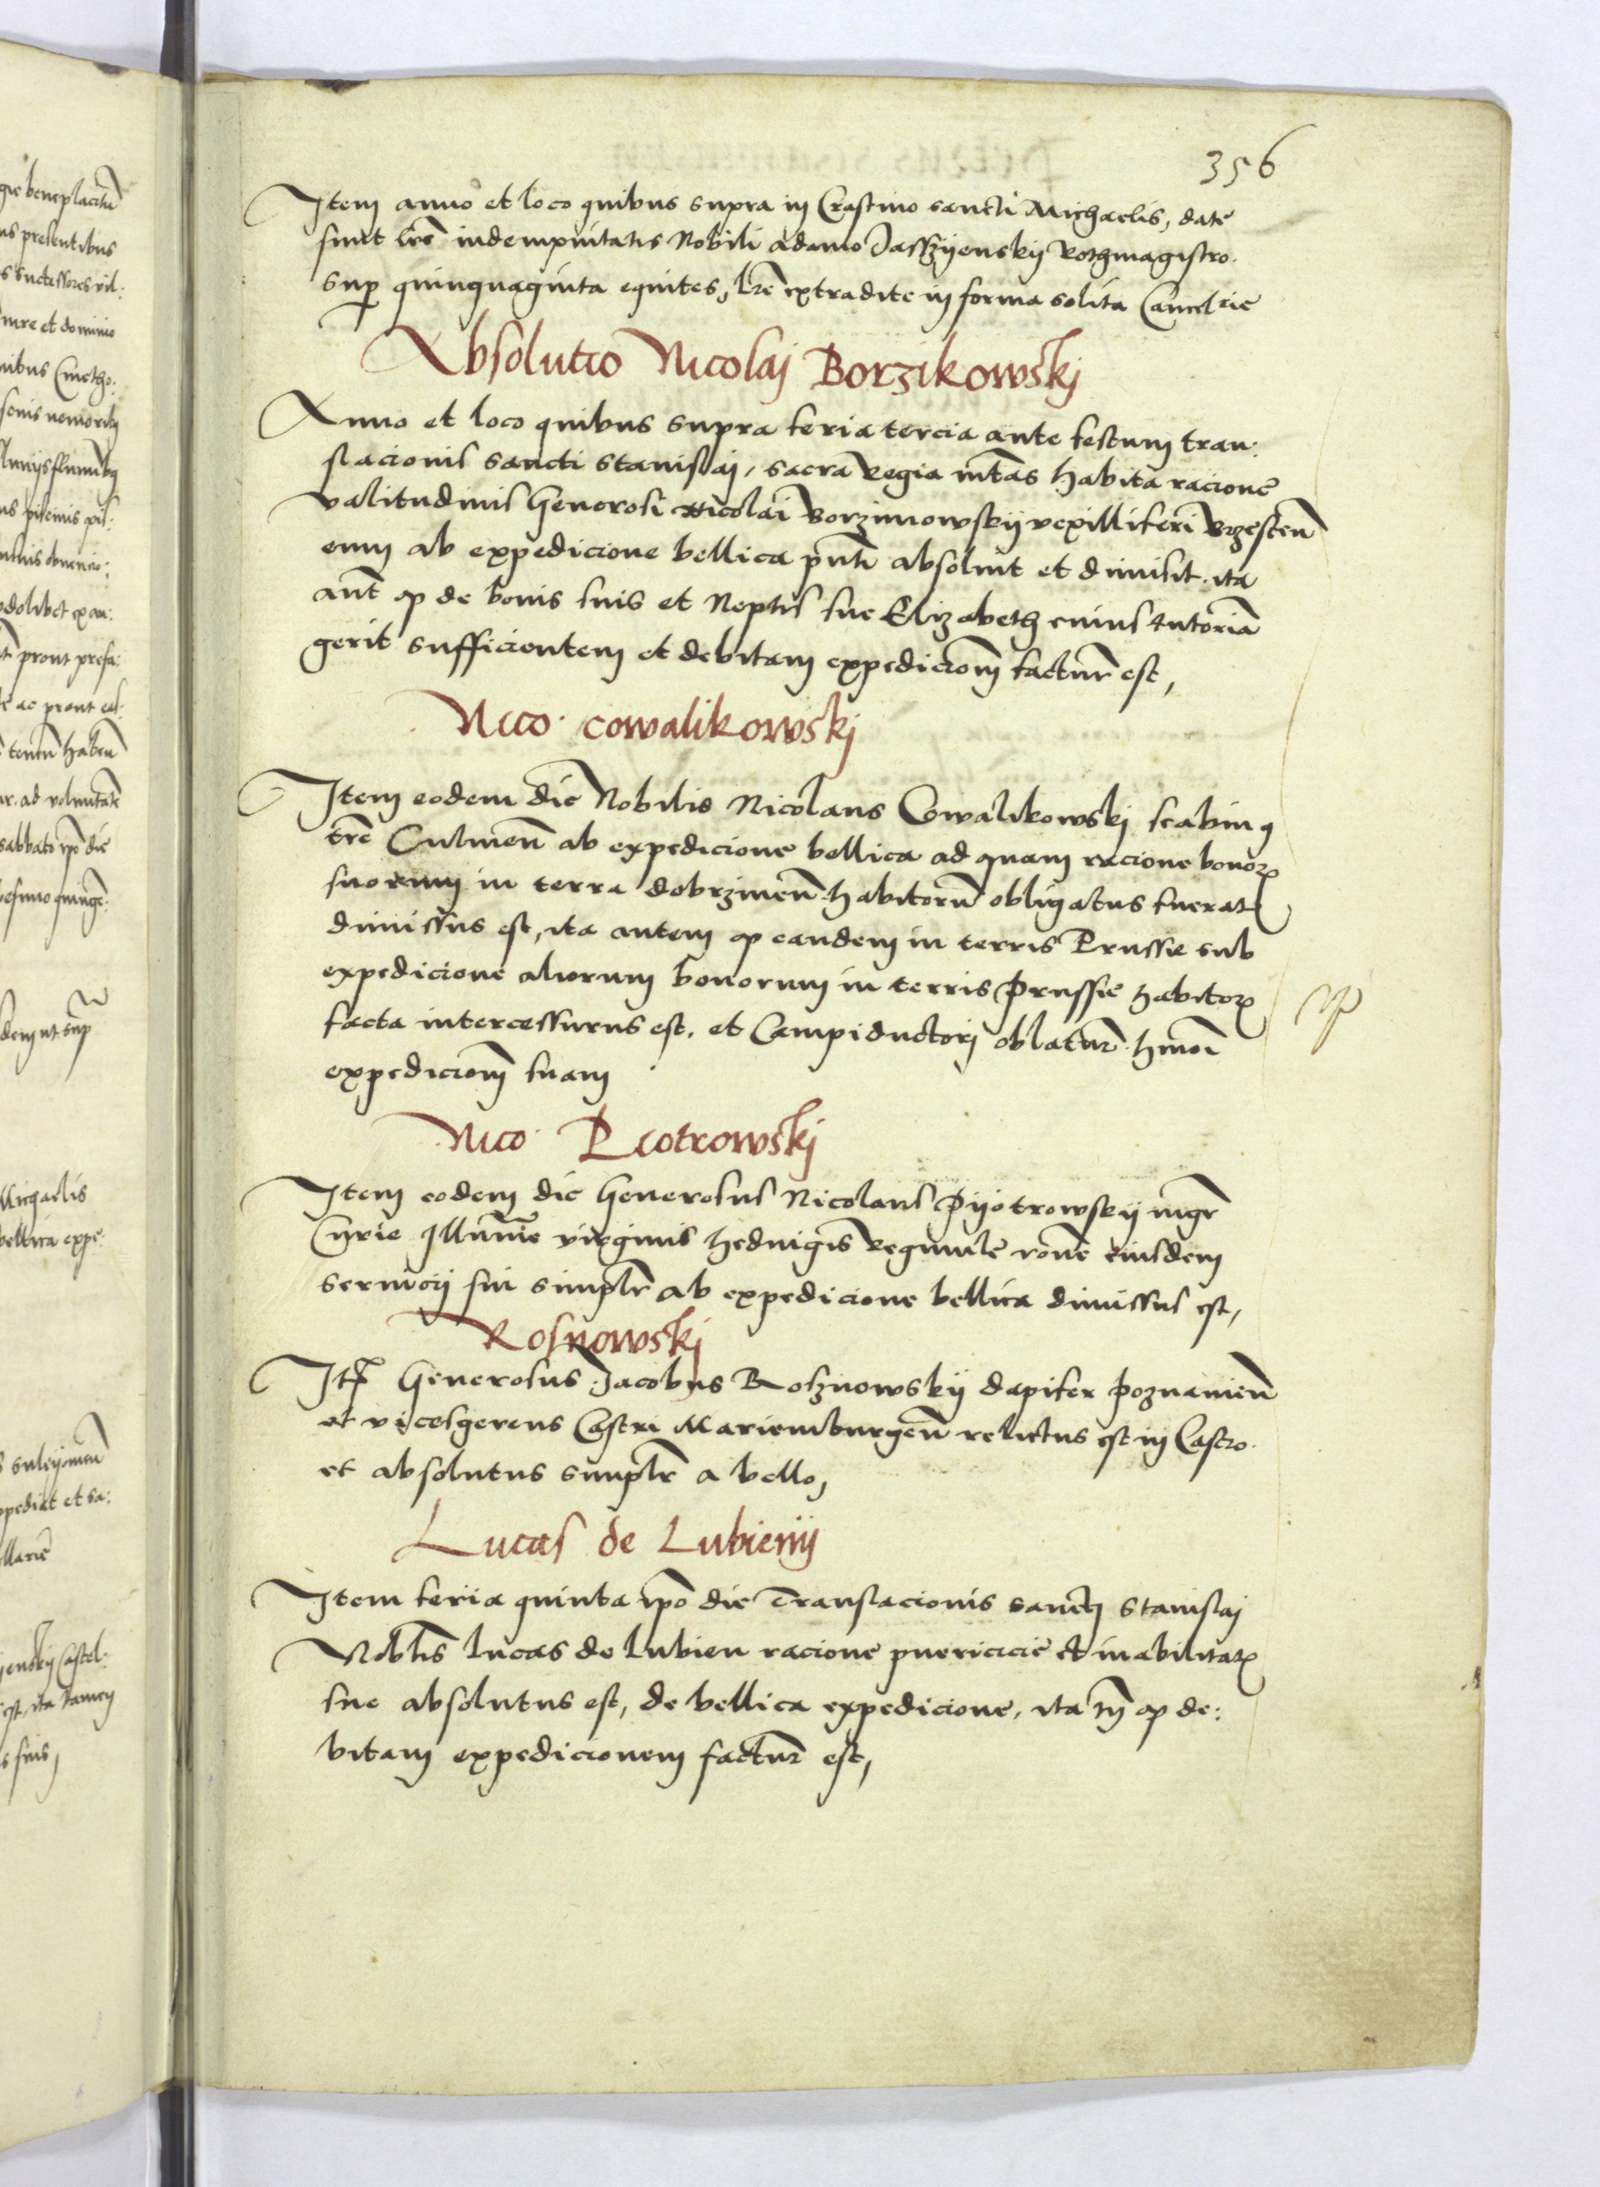 356
Item anno et loco quibus supra in Crastino sancti Michaelis, date
sunt lr̄e indempnitatis Nobili adamo Jasszyenskij Rothmagistro.
Sup quinquaginta equites, lr̄e extradite in forma solita Cancelrie
Absolutio Nicolaj Borzikowskj
Anno et loco quibus supra feria tercia ante festum tran:
slacionis sancti Stanislaj, sacra Regia m̄tas habita racione
valitudinis Generosi Nicolai Borzimowskij vexilliferi Brzesten̄
eum ab expedicione bellica pn̄ti absoluit et dimisit. ita
aut̄ q de bonis suis et Neptis sue Elizabeth cuius tutoriā
gerit sufficientem et debitam expedicioēm factur̄ est,
Nico. Cowalikowskj
Item eodem die Nobilis Nicolaus Cowalikowskj scabinꝯ
tr̄e Culmen̄ ab expedicione bellica ad quam racione bonoꝝ
suorum in terra dobrzinen̄ habitorū obligatus fuerat
dimissus est, ita autem q eandem in terris Prussie sub
expedicione aliorum bonorum in terris Prussie habitoꝝ
facta intercessurus est. et Campiductori oblatur̄ hmōi
expedicioēm suam
Nico. Piotrowskj
Item eodem die Generosus Nicolaus Pyotrowskij mgr̄
Curie Illun̄me virginis Hedvigis Regumule rōne eiusdem
seruicij sui simplr̄ ab expedicione bellica dimissus est,
Rosnowskj
Itē Generosus Jacobus Rosznowskij dapifer Poznanien̄
et vicesgerens Castri Mariemburgen̄ relictus est in Castro.
et absolutus simplr̄ a bello,
Lucas de Lubienij
Item feria quinta ipō die Translacionis sancti Stanislaj
Nobl̄is Lucas de Lubien racione puericicie et inabilitaꝝ
sue absolutus est, de bellica expedicione, ita tn̄ q de:
bitam expedicionem factur̄ est,